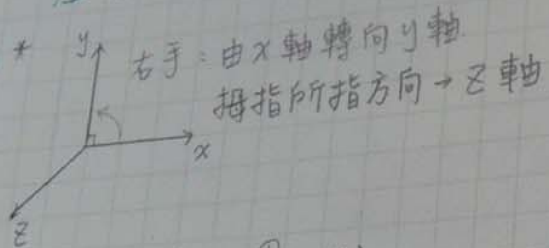 * y 右手：由x軸轉向y軸
拇指所指方向→z軸
x
z